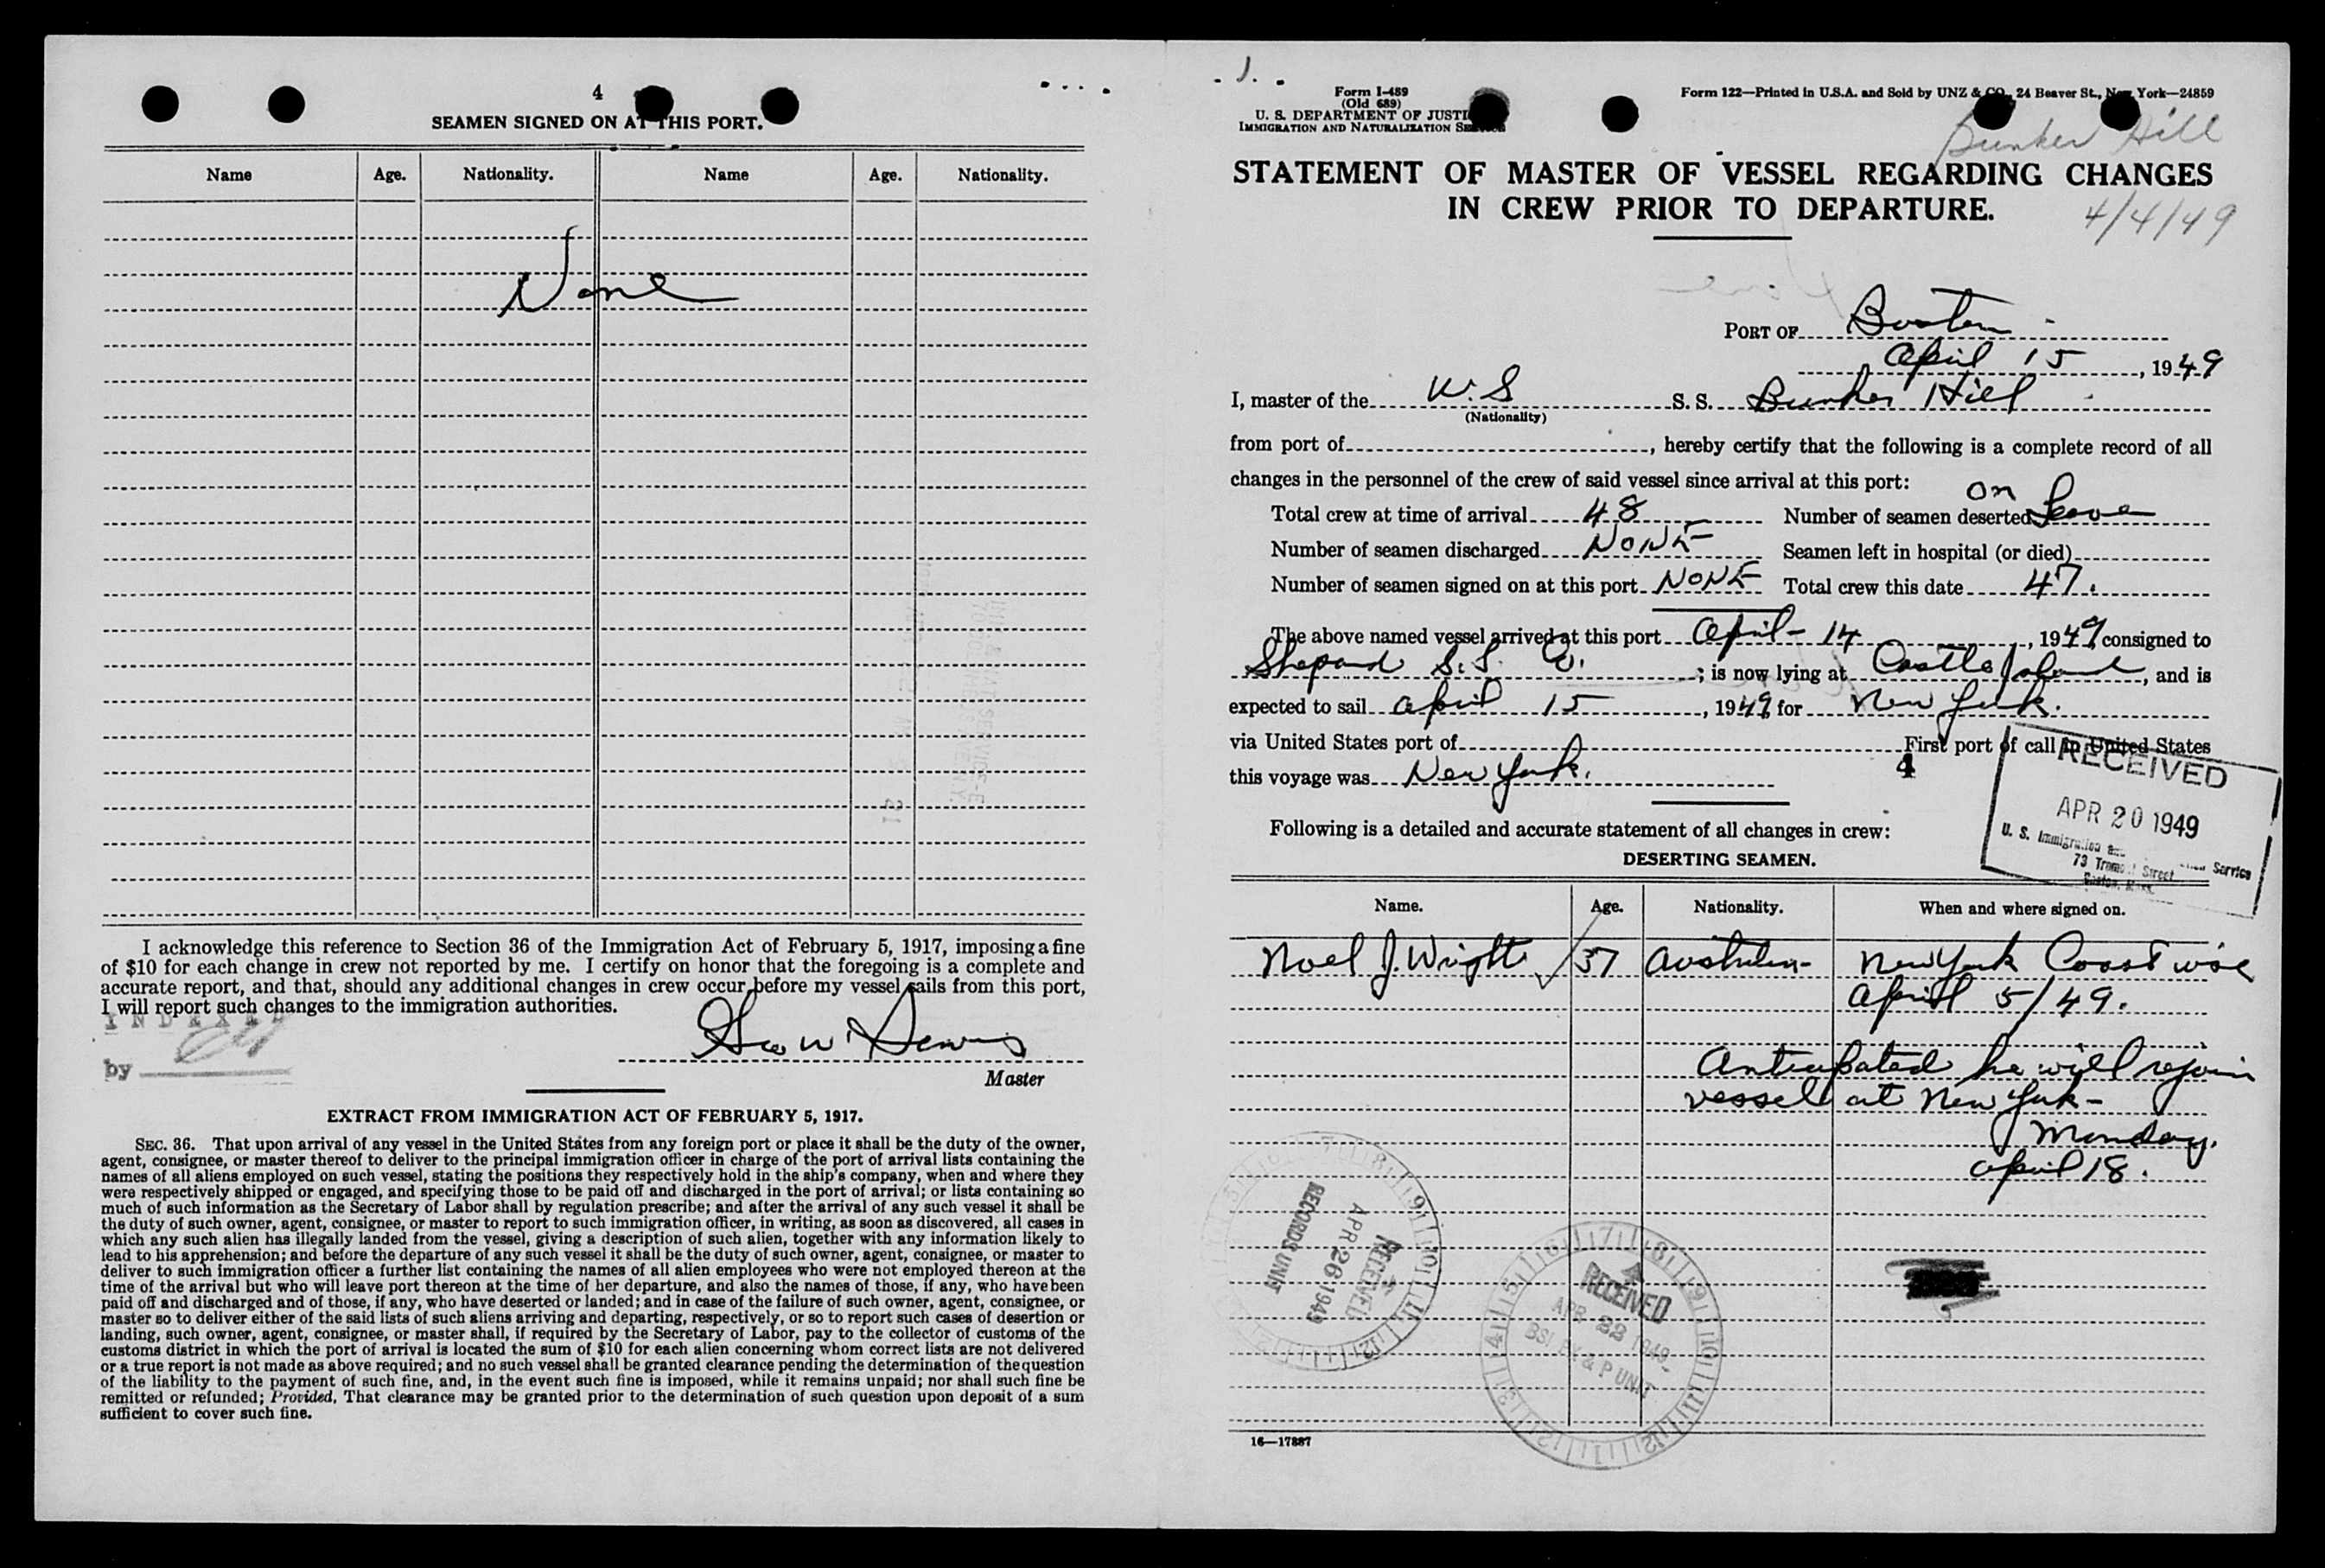 4
SEAMEN SIGNED ON AT THIS PORT.
Name Age. Nationality. Name Age. Nationality.
None
I acknowledge this reference to Section 36 of the Immigration Act of February 5, 1917, imposing a fine
of $10 for each change in crew not reported by me. I certify on honor that the foregoing is a complete and
accurate report, and that, should any additional changes in crew occur before my vessel sails from this port,
I will report such changes to the immigration authorities.
INDEXED
by
Geo W
Master
EXTRACT FROM IMMIGRATION ACT OF FEBRUARY 5, 1917.
SEC. 36. That upon arrival of any vessel in the United States from any foreign port or place it shall be the duty of the owner,
agent, consignee, or master thereof to deliver to the principal immigration officer in charge of the port of arrival lists containing the
names of all aliens employed on such vessel, stating the positions they respectively hold in the ship's company, when and where they
were respectively shipped or engaged, and specifying those to be paid off and discharged in the port of arrival; or lists containing so
much of such information as the Secretary of Labor shall by regulation prescribe; and after the arrival of any such vessel it shall be
the duty of such owner, agent, consignee, or master to report to such immigration officer, in writing, as soon as discovered, all cases in
which any such alien has illegally landed from the vessel, giving a description of such alien, together with any information likely to
lead to his apprehension; and before the departure of any such vessel it shall be the duty of such owner, agent, consignee, or master to
deliver to such immigration officer a further list containing the names of all alien employees who were not employed thereon at the
time of the arrival but who will leave port thereon at the time of her departure, and also the names of those, if any, who have been
paid off and discharged and of those, if any, who have deserted or landed; and in case of the failure of such owner, agent, consignee, or
master so to deliver either of the said lists of such aliens arriving and departing, respectively, or so to report such cases of desertion or
landing, such owner, agent, consignee, or master shall, if required by the Secretary of Labor, pay to the collector of customs of the
customs district in which the port of arrival is located the sum of $10 for each alien concerning whom correct lists are not delivered
or a true report is not made as above required; and no such vessel shall be granted clearance pending the determination of the question
of the liability to the payment of such fine, and, in the event such fine is imposed, while it remains unpaid; nor shall such fine be
remitted or refunded; Provided, That clearance may be granted prior to the determination of such question upon deposit of a sum
sufficient to cover such fine.
1.
Form I-489
(Old 689)
U. S. DEPARTMENT OF JUSTICE
IMMIGRATION AND NATURALIZATION SERVICE
Form 122—Printed in U.S.A. and Sold by UNZ & CO., 24 Beaver St., New York—24859
Bunker Hill
STATEMENT OF MASTER OF VESSEL REGARDING CHANGES
IN CREW PRIOR TO DEPARTURE.
4/4/49
PORT OF Boston
April 15, 1949
I, master of the U.S S. S. Bunker Hill
(Nationality)
from port of, hereby certify that the following is a complete record of all
changes in the personnel of the crew of said vessel since arrival at this port:
Total crew at time of arrival 48 Number of seamen deserted on Leave
Number of seamen discharged NONE Seamen left in hospital (or died)
Number of seamen signed on at this port NONE Total crew this date 47.
The above named vessel arrived at this port April - 14, 1949, consigned to
Shepard S.S. Co.; is now lying at Castle Island, and is
expected to sail April 15, 1949, for New York.
via United States port of First port of call in United States
this voyage was New York. 4
RECEIVED
APR 20 1949
U. S. Immigration Service
73 Tremont Street
Boston, Mass.
Following is a detailed and accurate statement of all changes in crew:
DESERTING SEAMEN.
Name. Age. Nationality. When and where signed on.
Noel J. Wright 37 New York Coastwise
April 5/49.
Anticipated he will rejoin
vessel at New York -
Monday.
April 18.
RECEIVED
APR 26 1949
RECORDS UNIT
RECEIVED
APR 22 1949
BSI & P UNIT
16—17887